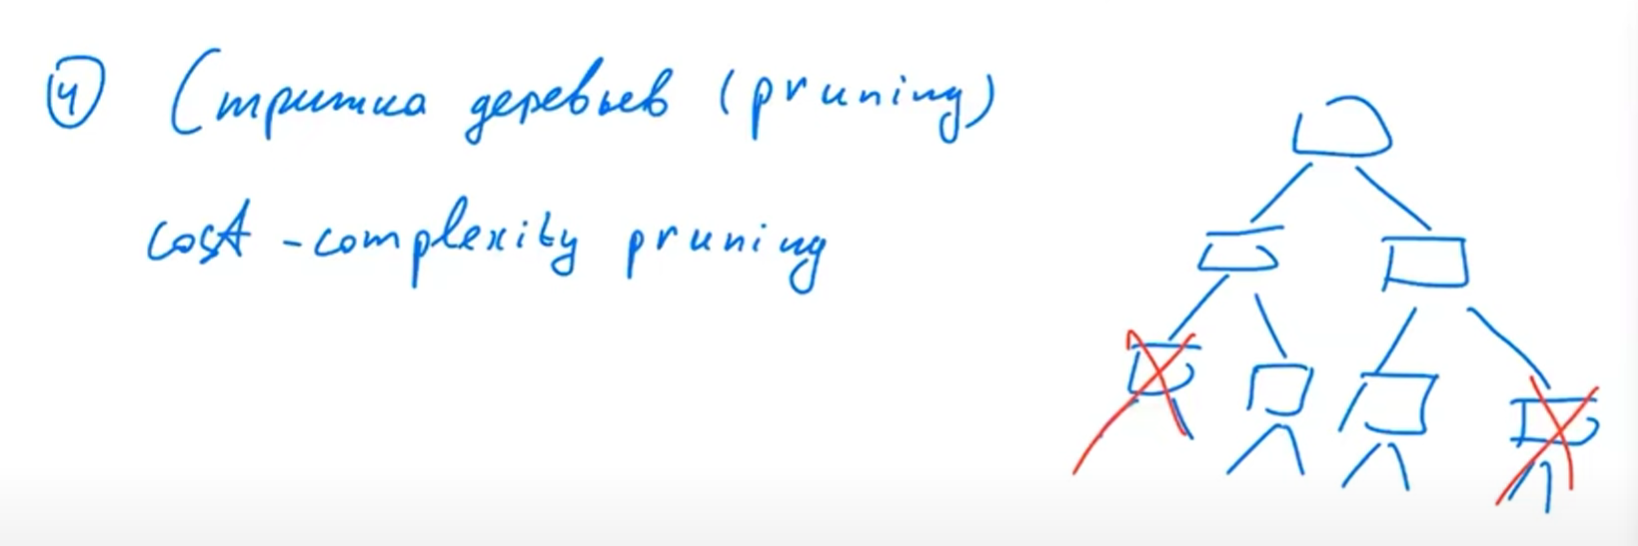 ④ Стрижка деревьев (pruning)
cost-complexity pruning